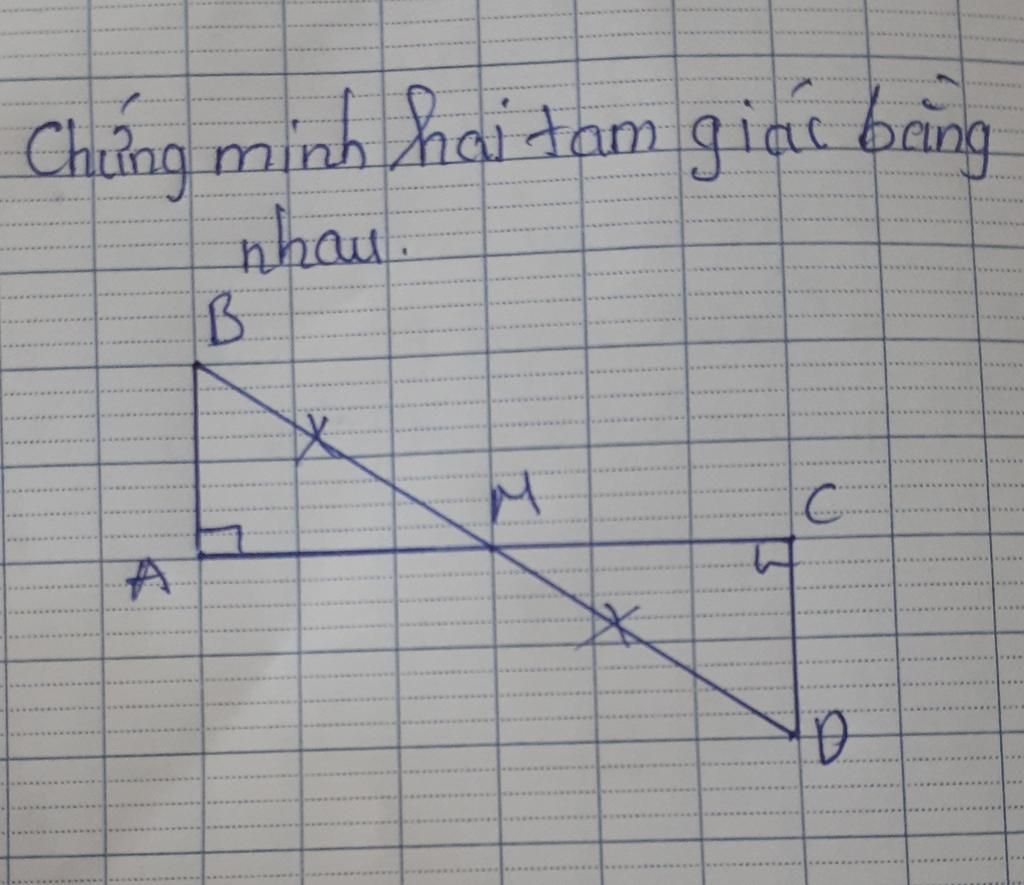 Chứng minh hai tam giác bằng
nhau.
B
M
C
A
D